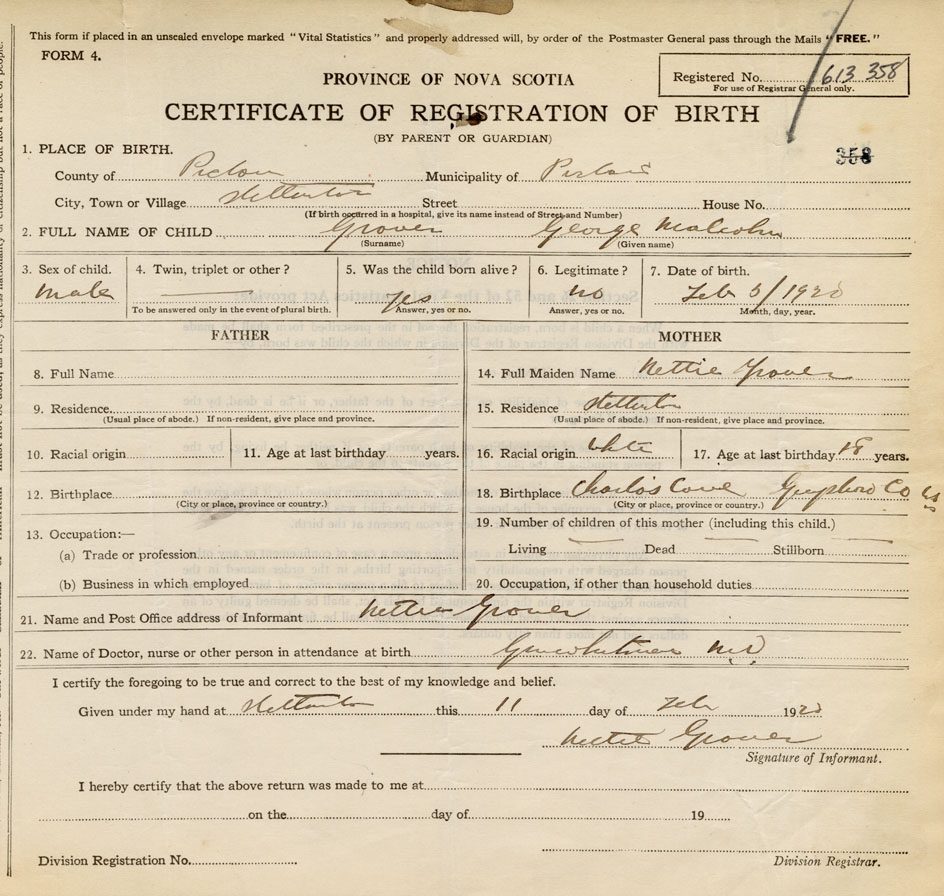 This form if placed in an unsealed envelope marked "Vital Statistics" and properly addressed will, by order of the Postmaster General pass through the Mails "FREE."
FORM 4.
PROVINCE OF NOVA SCOTIA
Registered No. 613 358
For use of Registrar General only.
CERTIFICATE OF REGISTRATION OF BIRTH
(BY PARENT OR GUARDIAN)
358
1. PLACE OF BIRTH.
County of Pictou Municipality of Pictou
City, Town or Village Stellarton Street House No.
(If birth occurred in a hospital, give its name instead of Street and Number)
2. FULL NAME OF CHILD Grover George Malcolm
(Surname) (Given name)
3. Sex of child. 4. Twin, triplet or other? 5. Was the child born alive? 6. Legitimate? 7. Date of birth.
Male yes no Feb 5/192
To be answered only in the event of plural birth. Answer, yes or no. Answer, yes or no. Month, day, year.
FATHER MOTHER
8. Full Name 14. Full Maiden Name Nettie Grover
9. Residence 15. Residence Stellarton
(Usual place of abode.) If non-resident, give place and province. (Usual place of abode.) If non-resident, give place and province.
10. Racial origin 11. Age at last birthday years. 16. Racial origin white 17. Age at last birthday 18 years.
12. Birthplace 18. Birthplace Charlo's Cove Co NS
(City or place, province or country.) (City or place, province or country.)
19. Number of children of this mother (including this child.)
13. Occupation:—
Living Dead Stillborn
(a) Trade or profession
(b) Business in which employed 20. Occupation, if other than household duties
21. Name and Post Office address of Informant Nettie Grover
22. Name of Doctor, nurse or other person in attendance at birth MD
I certify the foregoing to be true and correct to the best of my knowledge and belief.
Given under my hand at Stellarton this 11 day of Feb 192
Nettie Grover
Signature of Informant.
I hereby certify that the above return was made to me at
on the day of 19
Division Registration No.
Division Registrar.